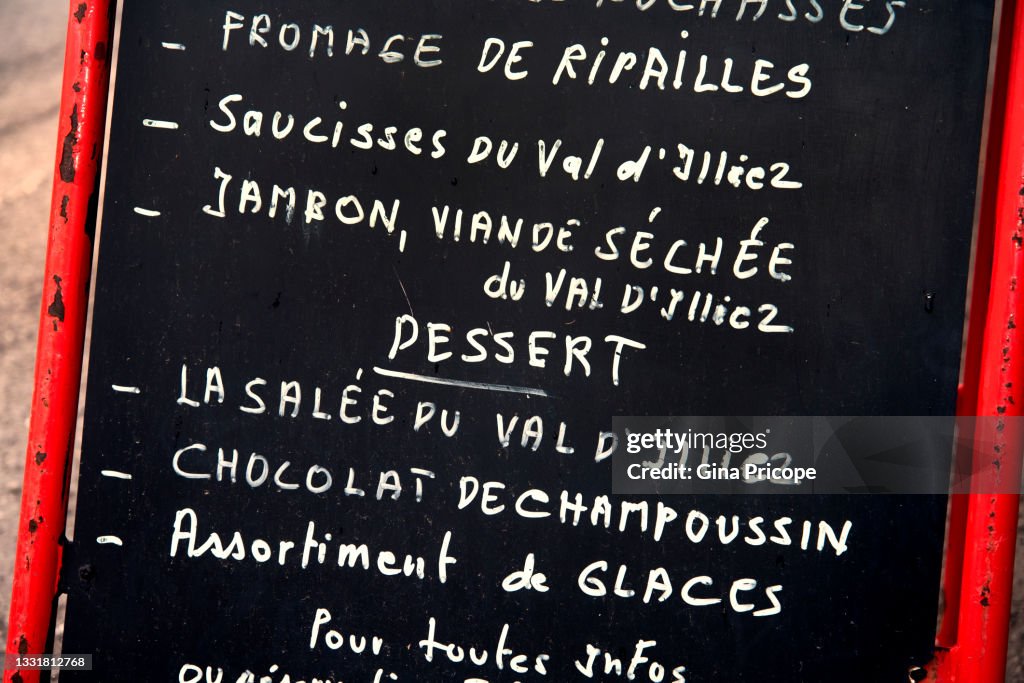 - FROMAGE DE RIPAILLES
- Saucisses DU Val d'Illiez
- JAMBON, VIANDE SÉCHÉE
du VAL D'Illiez
DESSERT
- LA SALÉE DU VAL D'Illiez
- CHOCOLAT DE CHAMPOUSSIN
- Assortiment de GLACES
Pour toutes Infos
gettyimages®
Credit: Gina Pricope
1331812768